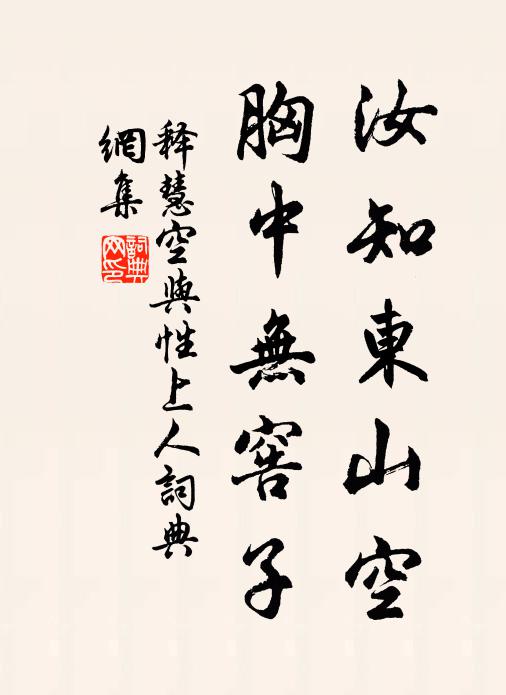 汝知東山空
胸中無窖子
释慧空與性上人詞典
網集
詞典
网印